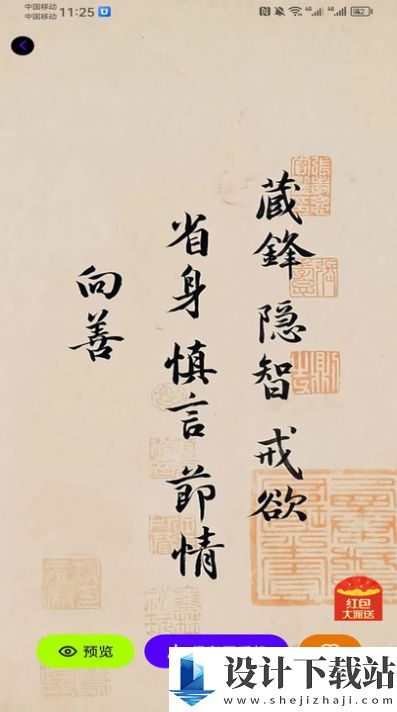 中国移动
中国移动 11:25
藏鋒 隐智 戒欲
省身 慎言 節情
向善
红包
大派送
预览
设计下载站
www.shejizhaji.com